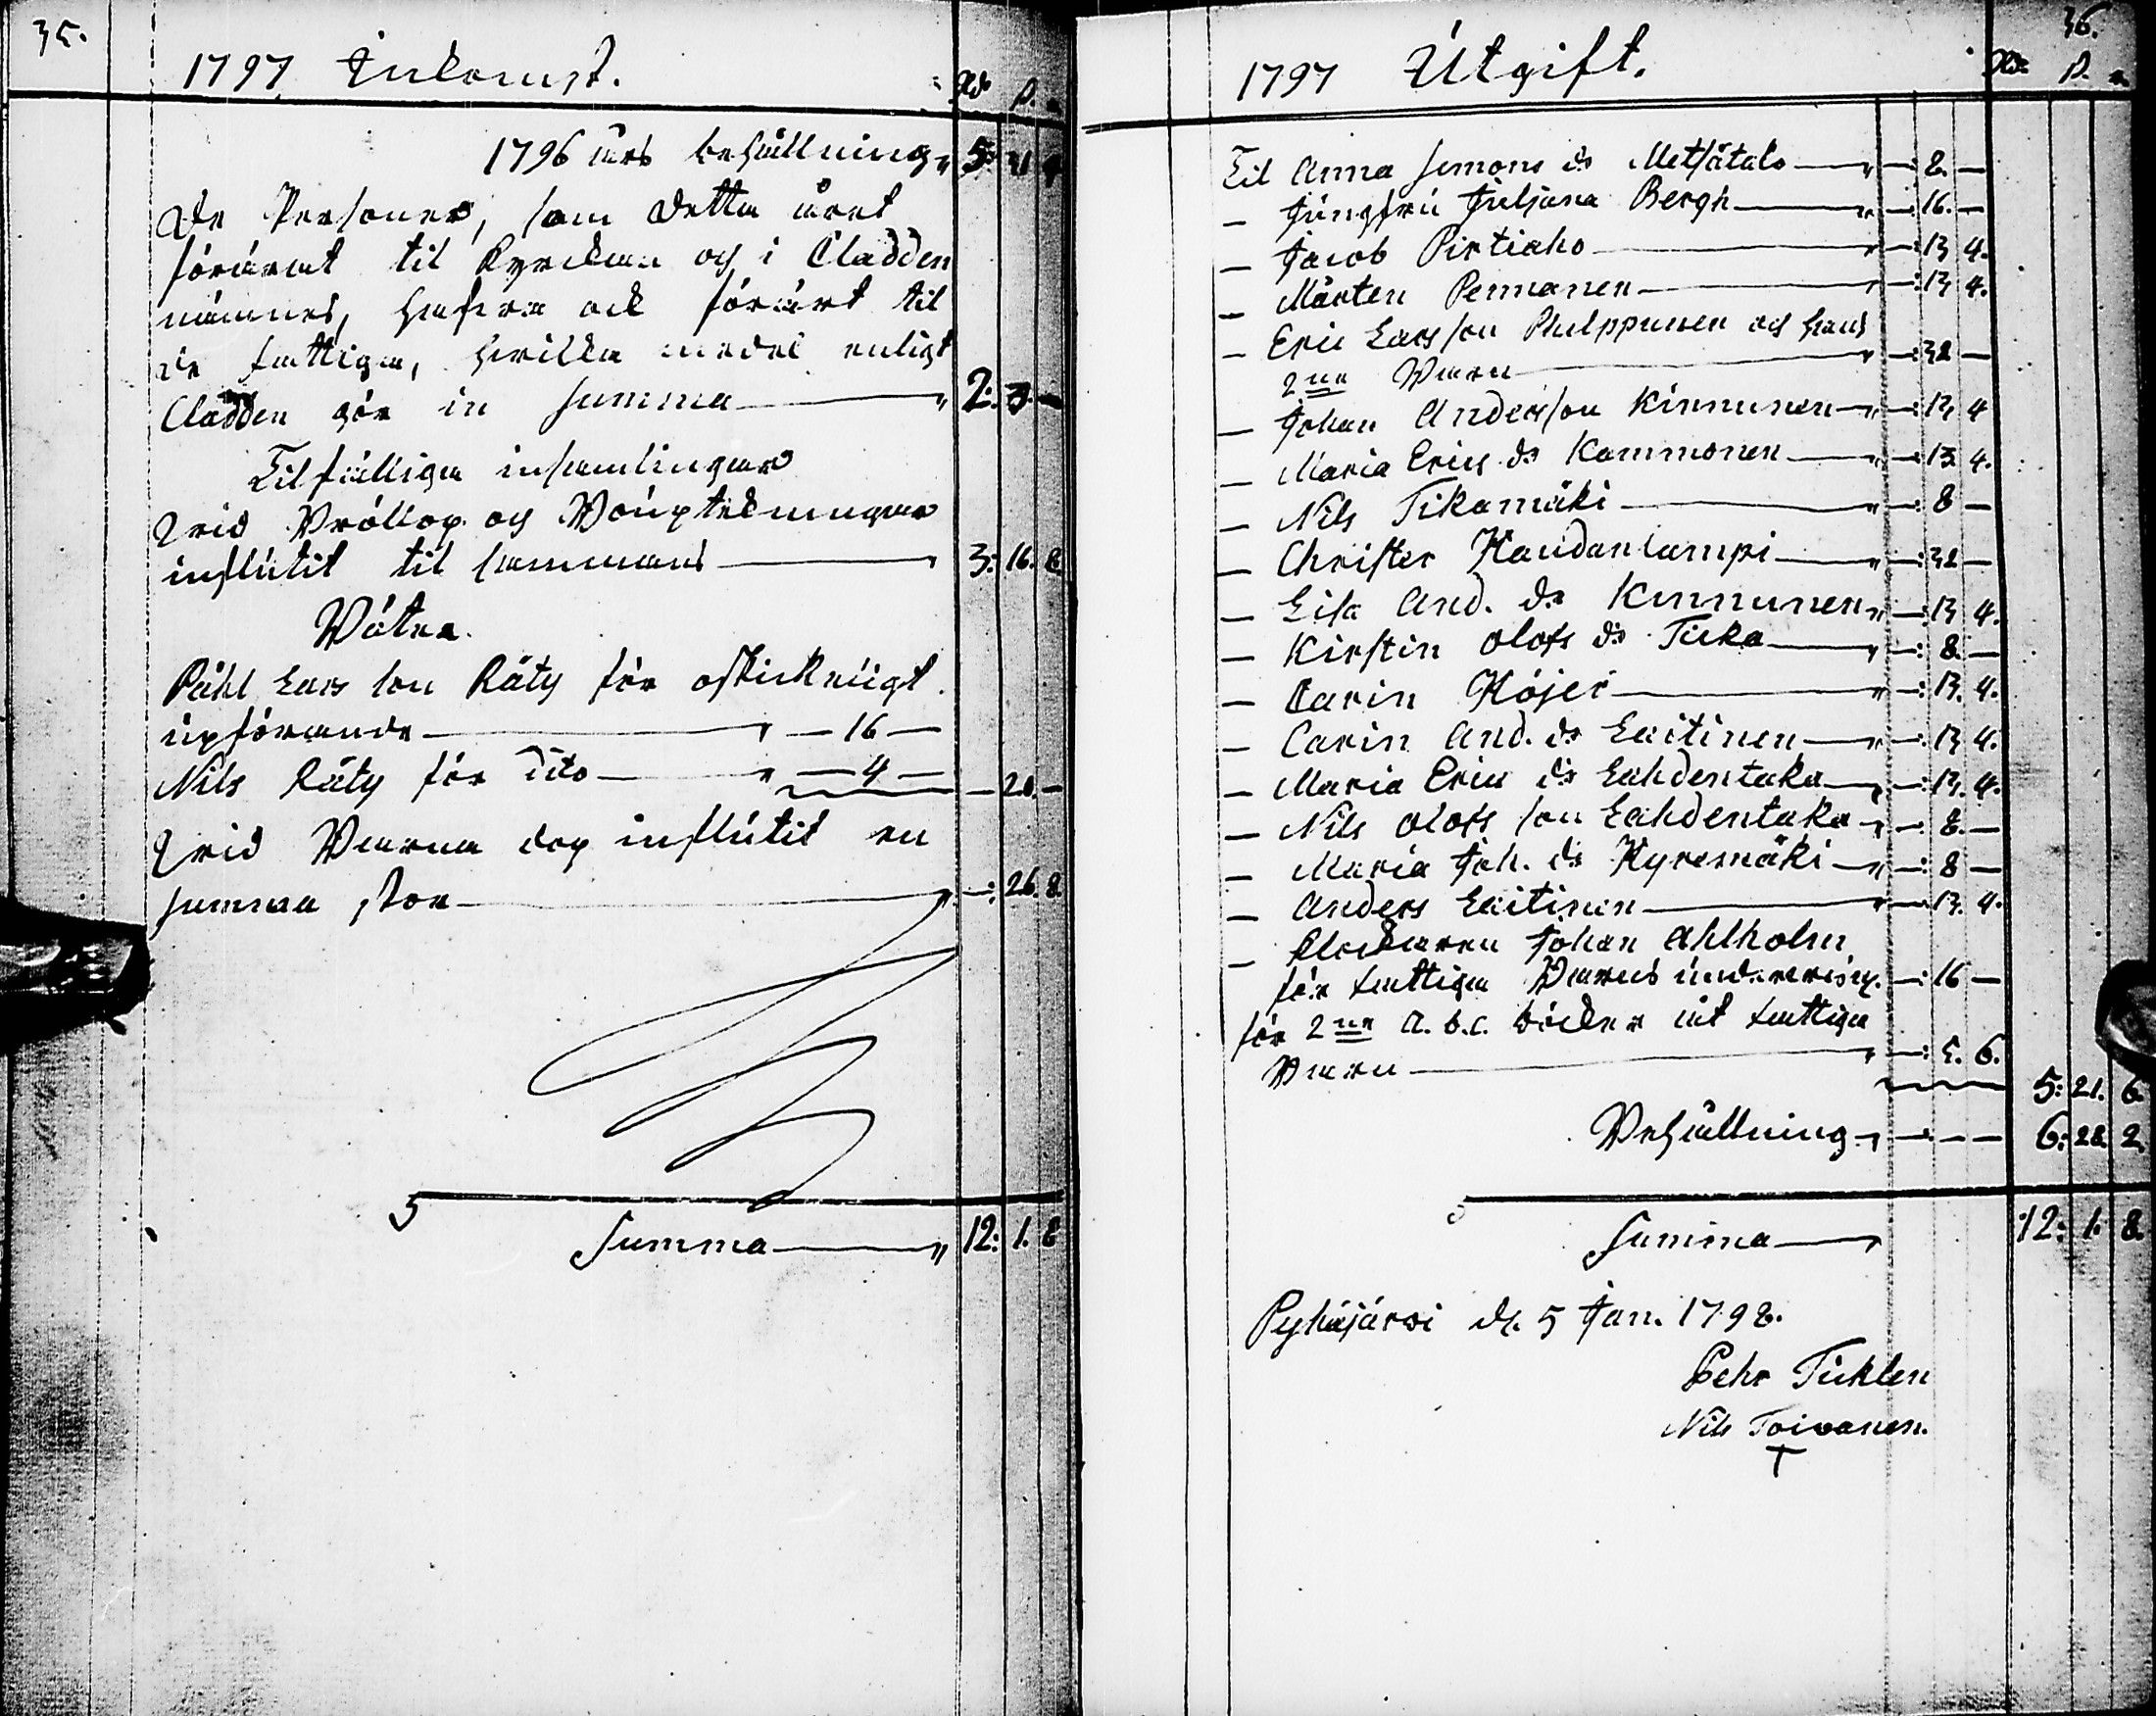 35.
1797 Inkomst. Rdr ß.
1796 års behållning 5: 31 4
De Personer, som detta året
förärat til Kyrckan och i Cladden
nämnes, hafva ock förärt til
de fattiga, hvilka medel enligt
Cladden gör in summa — 2: 3. —
Tilfälliga insamlingar
Vid Bröllop och Barnsteckningar
influtit til sammans — 3: 16. 8
Böter.
Påhl Lars son Räty för oskickeligt
upförande — — 16 —
Nils Räty för dito — — 4 — — 20. —
Vid Barna dop influtit en
summa stor — —: 26. 8.
Summa — 12: 1. 8
36.
1797 Utgift. Rdr ß.
Til Anna Simons dr Metsätalo — —: 8. —
— Jungfru Juliana Bergh — —: 16. —
— Jacob Pirtiaho — —: 13 4.
— Mårten Pennanen — —: 13 4.
— Eric Larsson Philppunen och hans
2ne Barn — —: 32 —
— Johan Andersson Kinnunen — —: 13 4
— Maria Erics dr Kammonen — —: 13 4.
— Nils Tikamäki — —: 8 —
— Christer Haudanlampi — —: 32 —
— Lisa And. dr Kinnunen — —: 13 4.
— Kirstin Olofs dr Ticka — —: 8. —
— Carin Höjer — —: 13. 4.
— Carin And. dr Laitinen — —: 13 4.
— Maria Erics dr Lahdentaka — —: 13. 4.
— Nils Olofs son Lahdentaka — —: 8. —
— Maria Joh. dr Hyvesmäki — —: 8 —
— Anders Laitinen — — 13. 4.
— Klockaren Johan Ahlholm
för fattiga Barns underwisn. —: 16 —
för 2ne A. b. c. böcker åt fattiga
Barn — —: 5. 6.
5: 21. 6.
Behållning — — — — 6: 28. 2.
Summa — 12: 1. 8.
Pyhäjärwi d. 5 Jan. 1798.
Pehr Ticklen
Nils Toivanen.
T